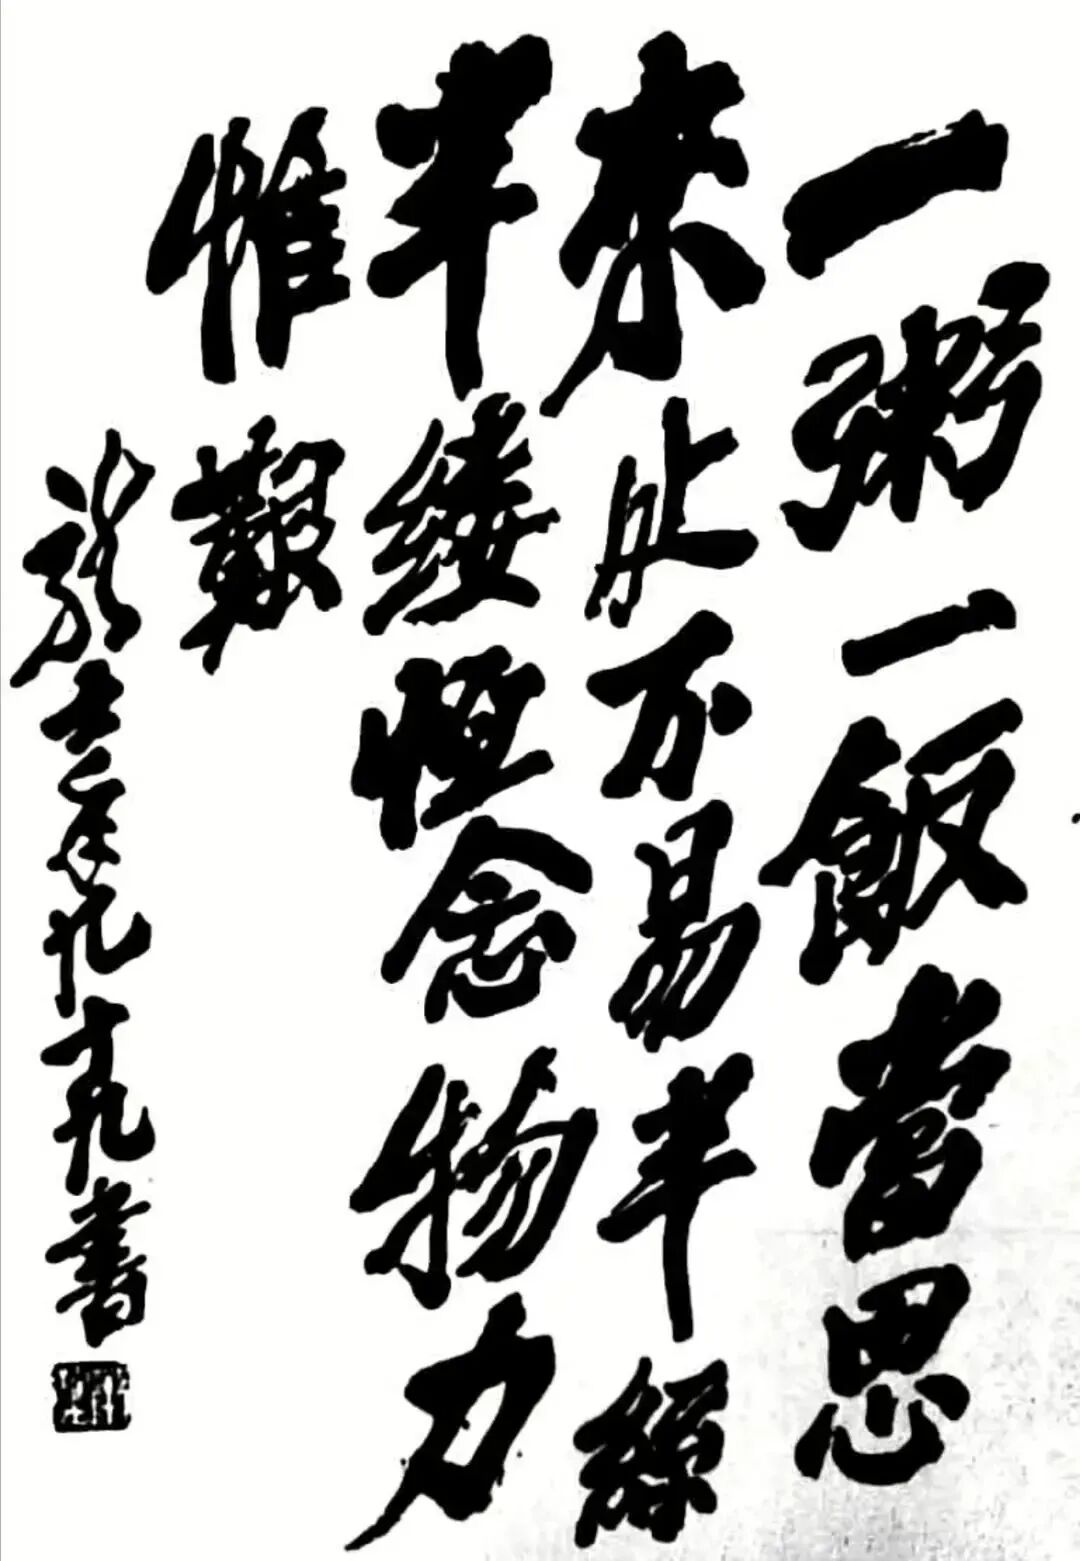 一粥一飯當思
來處不易半絲
半縷恒念物力
惟艱
龍士年九十九書